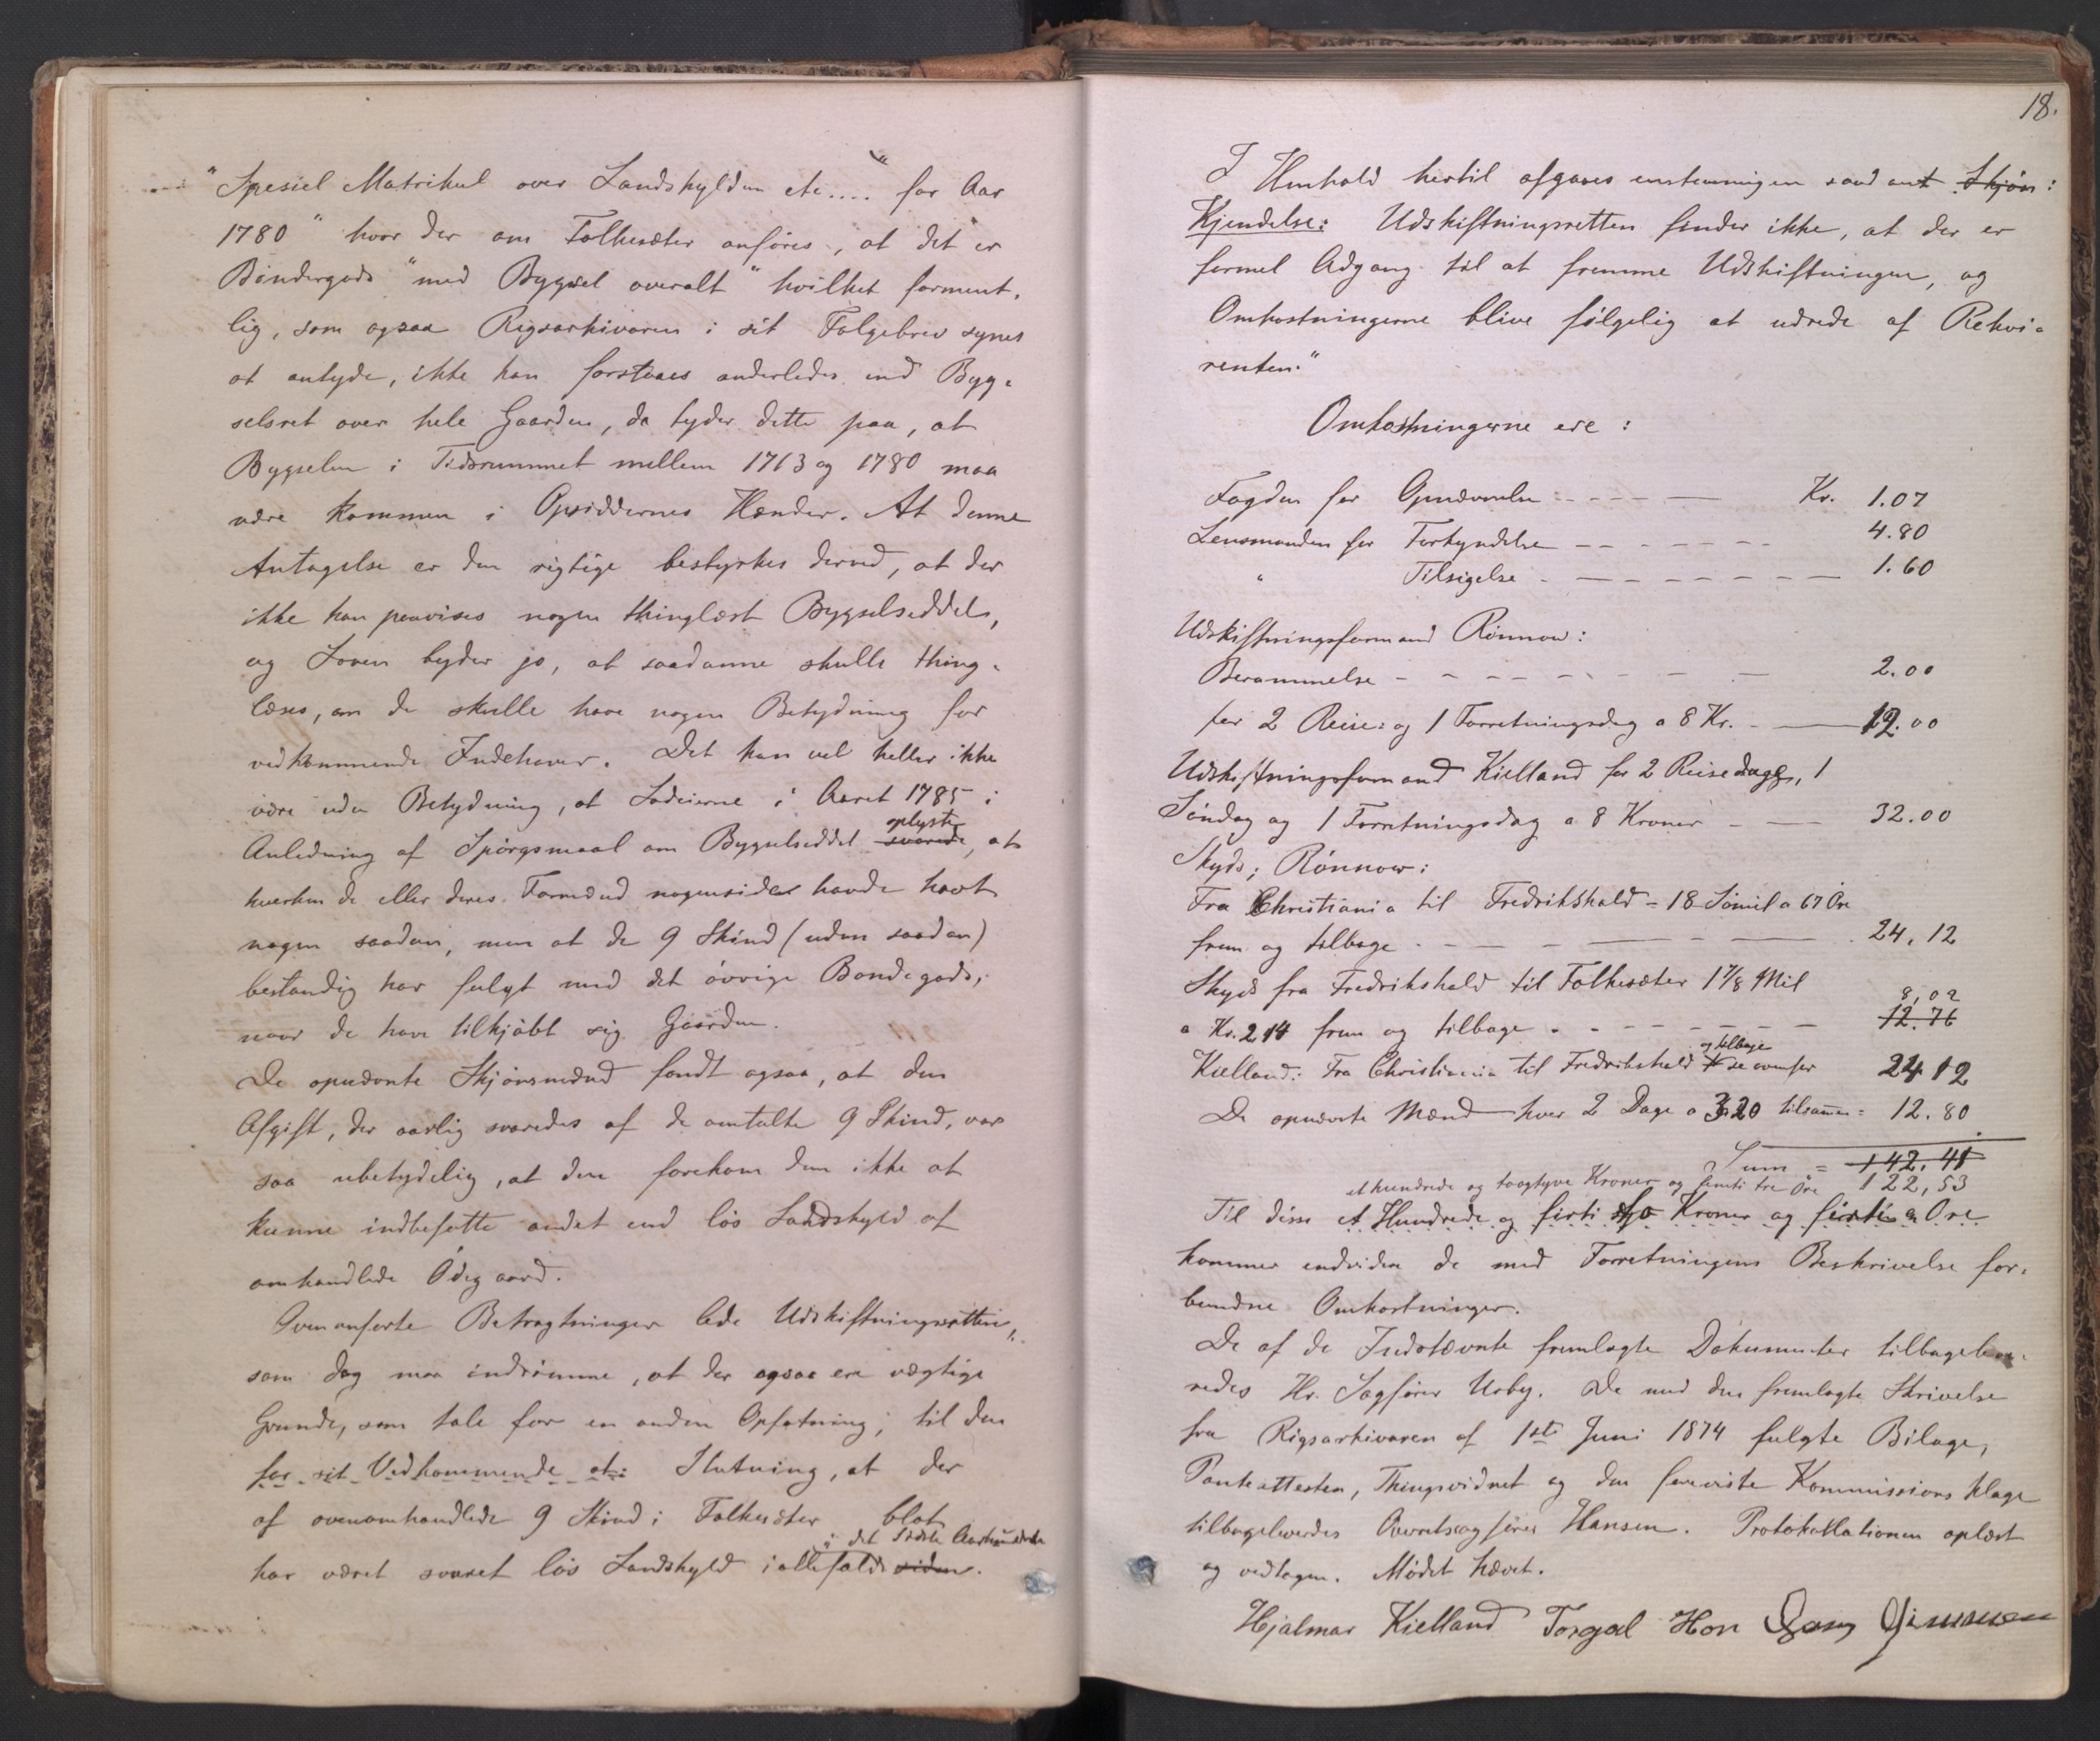 "Spesiel Matrikul over Landskylden etc...." for Aar
1780" hvor der om Folkesæter anføres, at det er
Bøndergods "med Bygsel overalt" hvilket forment-
lig, som ogsaa Rigsarkivaren i sit Følgebrev synes
at antyde, ikke kan forstaaes anderledes end Byg-
selsret over hele Gaarden, da tyder dette paa, at
Bygselen i Tidsrummet mellem 1713 og 1780 maa
være kommen i Opsiddernes Hænder. At denne
Antagelse er den rigtige bestyrkes derved, at der
ikke kan paavises nogen thinglæst Bygselseddel,
og Loven byder jo, at saadanne skulle thing-
læses, om de skulle have nogen Betydning for
vedkommende Indehaver. Det kan vel heller ikke
være uden Betydning, at Lodeierne i Aaret 1785 i
oplyste
Anledning af Spørgsmaal om Bygselseddel svarede, at
hverken de eller deres Formænd nogensider havde havt
nogen saadan, men at de 9 Skind (uden saadan)
bestandig har fulgt med det øvrige Bondegods,
naar de have tilkjøbt sig Gaarden.
De opnævnte Skjønsmænd fandt ogsaa, at den
Afgift, der aarlig svaredes af de omtalte 9 Skind, var
saa ubetydelig, at den forekom dem ikke at
kunne indbefatte andet end løs Landskyld af
omhandlede Ödegaard.
Ovenanførte Betragtninger lede Udskiftningsretten,
som dog maa indrømme, at der ogsaa ere vægtige
Grunde, som tale for en anden Opfatning, til den
for sit Vedkommende at: Slutning, at der
af ovenomhandlede 9 Skind i Folkesæter blot
i det sidste Aarhundrede
har været svaret løs Landskyld iallefald siden.
18.
I Henhold hertil afgaves enstemmigen saadant Skjøn:
Kjendelse: Udskiftningsretten finder ikke, at der er
formel Adgang til at fremme Udskiftningen, og
Omkostningerne blive følgelig at udrede af Rekvi-
renten."
Omkostningerne ere:
Fogden for Opnævnelse - - - - Kr. 1.07
Lensmanden for Forkyndelse - - - - - - 4.80
" Tilsigelse - - - - - - - 1.60
Udskiftningsformand Rønnow:
Berammelse - - - - - - - - 2.00
for 2 Reise- og 1 Forretningsdag a 8 Kr. - - 12.00
Udskiftningsformand Kielland for 2 Reisedage, 1
Søndag og 1 Forretningsdag a 8 Kroner - - 32.00
Skyds; Rønnow:
Fra Christiania til Fredrikshald = 18 Sömil a 67 Öre
frem og tilbage - - - - - - 24.12
Skyds fra Fredrikshald til Folkesæter 1 7/8 Mil
8,02
a Kr. 2.14 frem og tilbage - - - - - - - 12.76
og tilbage
Kielland: Fra Christiania til Fredrikshald se ovenfor 24 12
De opnævnte Mænd hver 2 Dage a 3.20 tilsammen = 12.80
Sum = 142.41
et hundrede og toogtyve Kroner og femti tre Öre 122,53
Til disse et Hundrede og firti to Kroner og firti a Öre
kommer endvidere de med Forretningens Beskrivelse for-
bundne Omkostninger.
De af de Indstævnte fremlagte Dokumenter tilbageleve-
redes Hr. Sagfører Urby. De med den fremlagte Skrivelse
fra Rigsarkivaren af 1ste Juni 1874 fulgte Bilage,
Panteattesten, Thingsvidnet og den foreviste Kommissions klage
tilbageleverdes Overretssagfører Hansen. Protokollationen oplæst
og vedtagen. Mødet hævet.
Hjalmar Kielland Torgal Hon